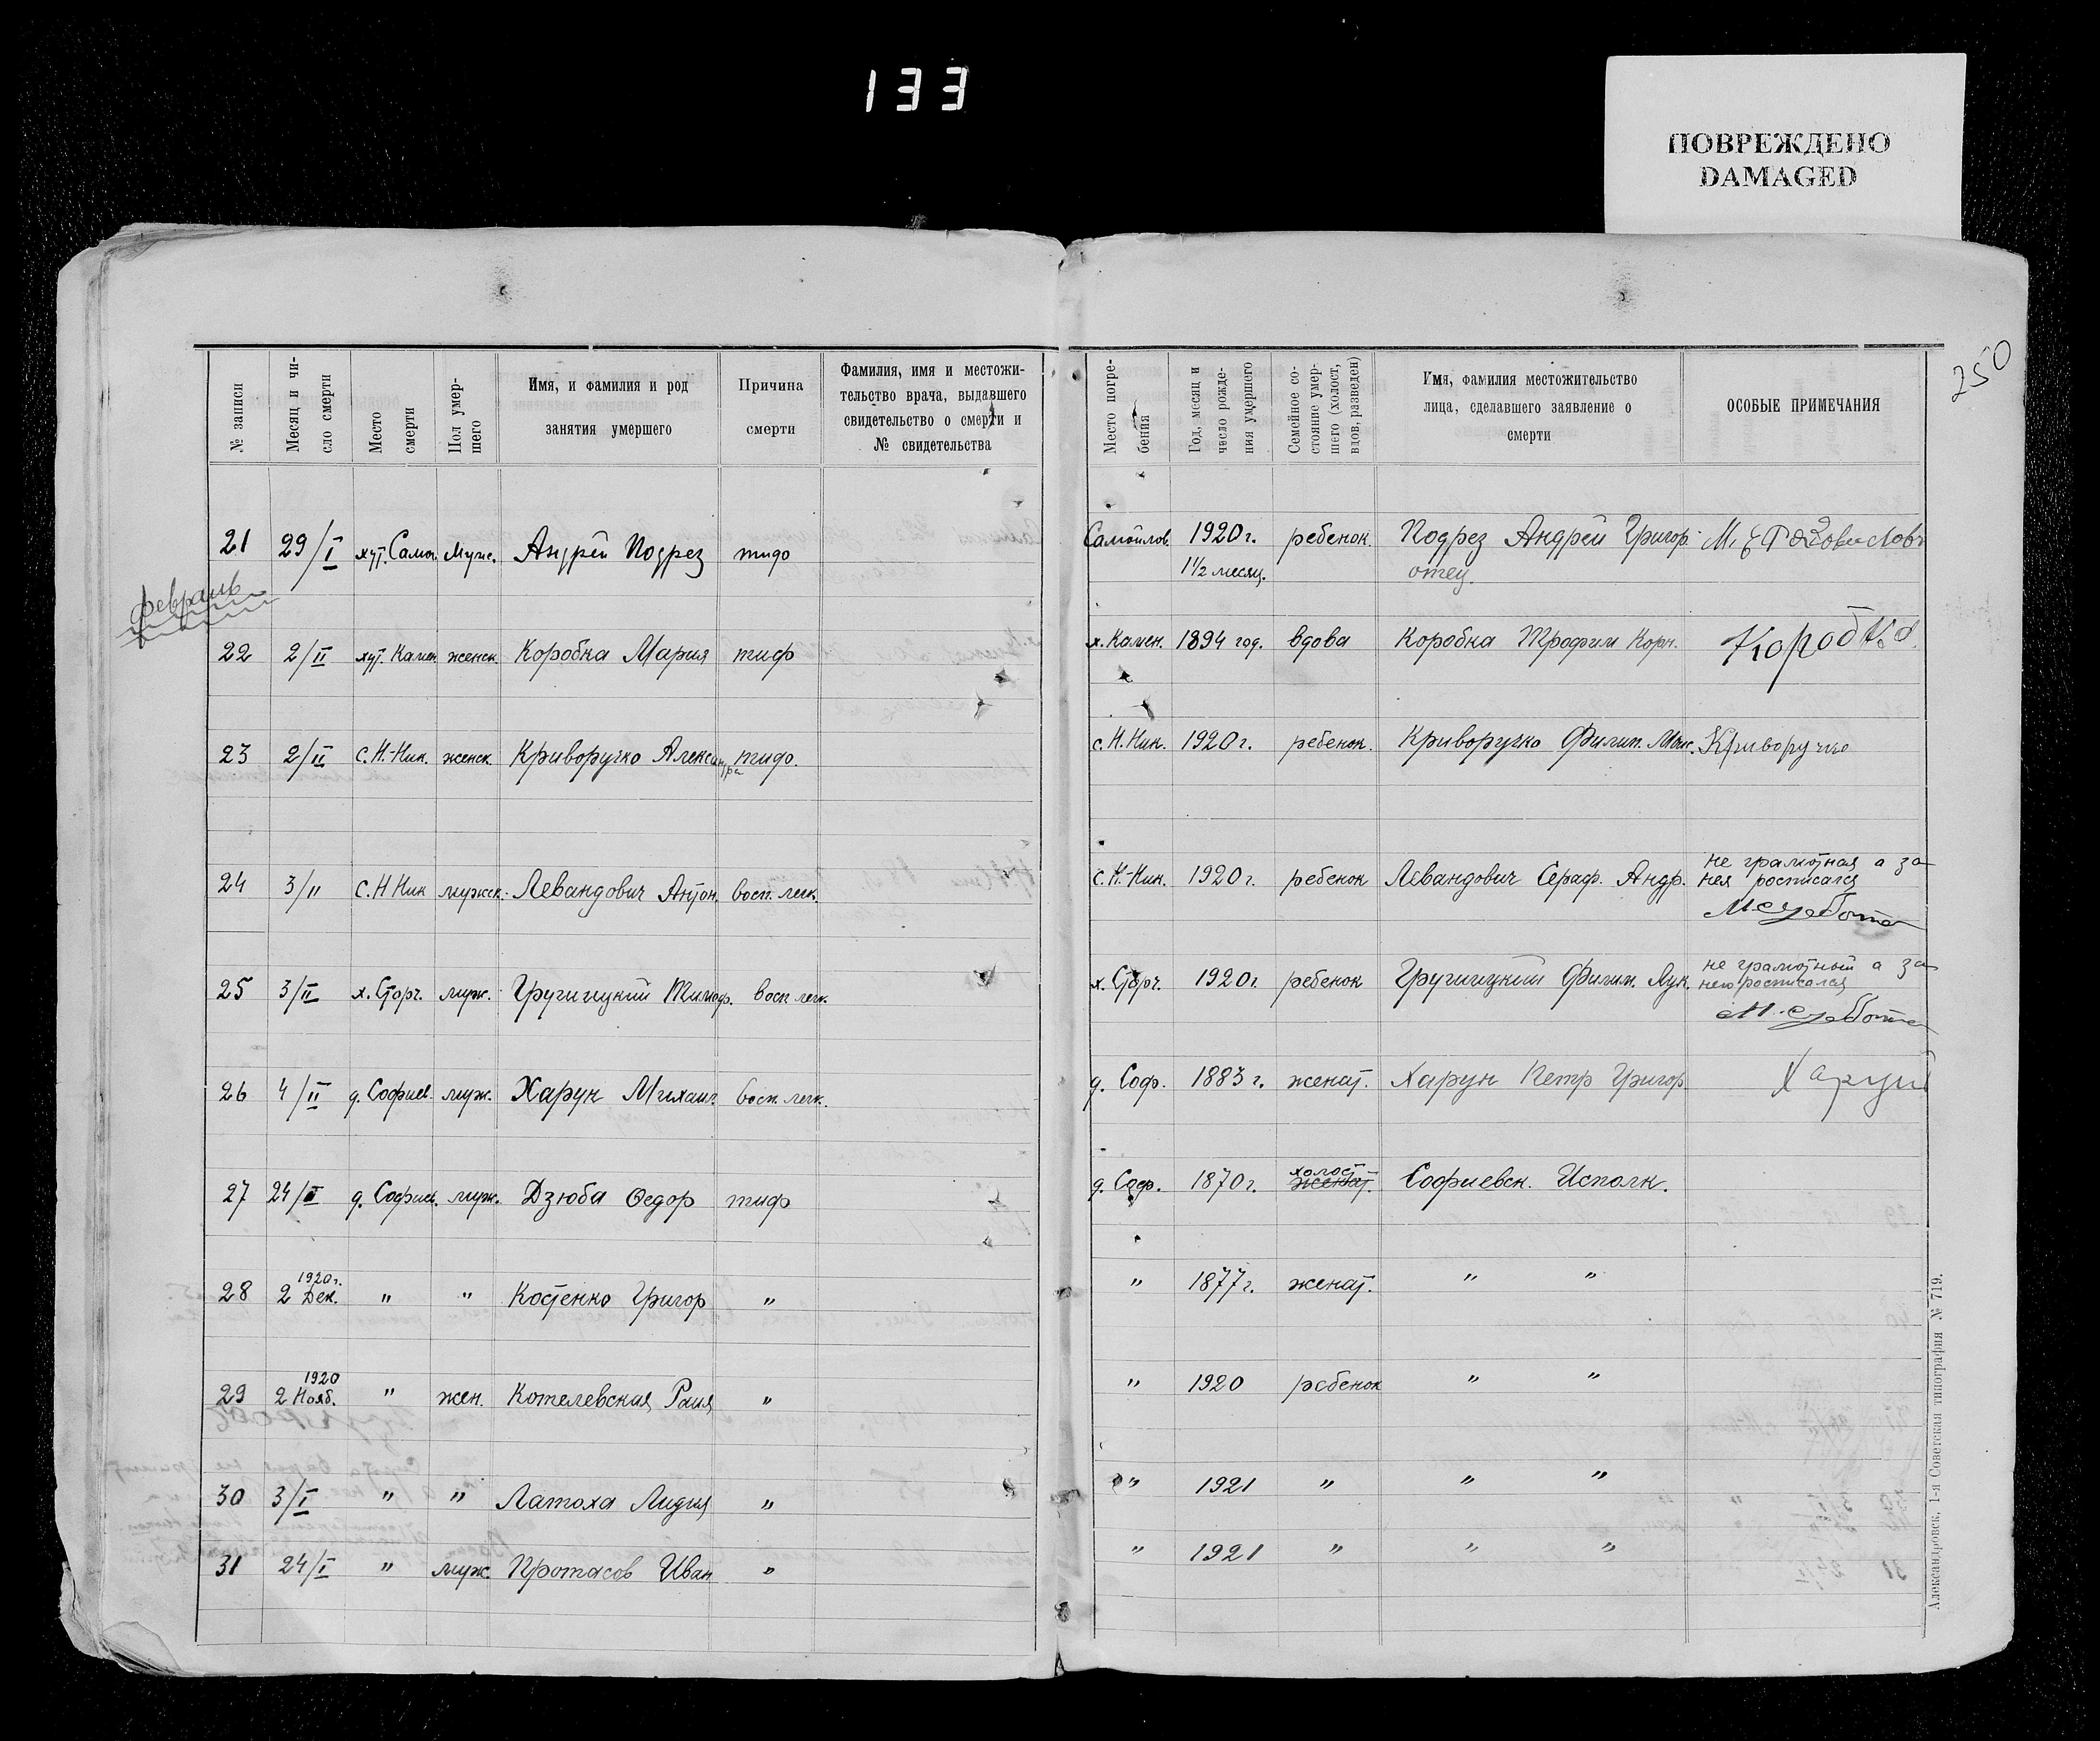 133
ПОВРЕЖДЕНО
DAMAGED
250
№ записи
Месяц и чи-
сло смерти
Место
смерти
Пол умер-
шего
Имя, и фамилия и род
занятия умершего
Причина
смерти
Фамилия, имя и местожи-
тельство врача, выдавшего
свидетельство о смерти и
№ свидетельства
Место погре-
бения
Год, месяц и
число рожде-
ния умершего
Семейное со-
стояние умер-
шего (холост,
вдов, разведен)
Имя, фамилия местожительство
лица, сделавшего заявление о
смерти
ОСОБЫЕ ПРИМЕЧАНИЯ
21 29/I хут. Самой. Муж. Андрей Подрез тиф Самойлов. 1920 г. ребенок. Подрез Андрей Григор.
1½ месяц. отец.
февраль
22 2/II хут. Камен. женск. Коробка Мария тиф х. Камен. 1894 год. вдова Коробка Трофим Корн. Коробка
23 2/II с. Н.-Ник. женск. Криворучко Александра тиф. с. Н. Ник. 1920 г. ребенок. Криворучко Филип. Моис. Криворучко
24 3/II с. Н Ник мужск. Левандович Антон. восп. легк. с. Н.-Ник. 1920 г. ребенок Левандович Сераф. Андр. не грамотная а за
нея росписался
25 3/II х. Сторч. муж. восп легк. х. Сторч. 1920 г. ребенок Филип. Лук. не грамотный а за
него росписался
26 4/II д. Софиев. муж. Харун Михаил восп. легк. д. Соф. 1883 г. женат. Харун Петр Григор. Харун
27 24/I д. Софиев. муж. Дзюба Федор тиф д. Соф. 1870 г. холост женат. Софиевск. Исполк.
28 1920 г. 2 Дек. " " Костенко Григор " " 1877 г. женат. " "
29 1920 2 Нояб. " жен. Котелевская Раия " " 1920 ребенок " "
30 3/I " " Латоха Лидия " " 1921 " " "
31 24/I " муж. Протасов Иван " " 1921 " " "
Александровск, 1-я Советская типография № 719.